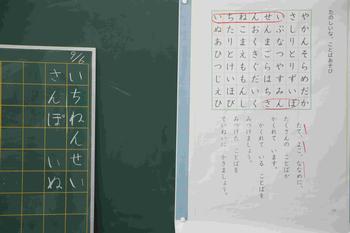 たのしいな、ことばあそび
やかんそらめだか
さしりとりずいぽ
いぶなつやすみん
せんまごらはちさ
んおくきぐだいく
ねこまえももんし
ちたりとけいほび
いぬあひつじえひ
たて、よこ、ななめに、
たくさんの　ことばが
かくれて　います。
かくれて　いる　ことばを
みつけましょう。
みつけた　ことばを
ていねいに　かきましょう。
9/6
いちねんせい
さんぽ　いぬ